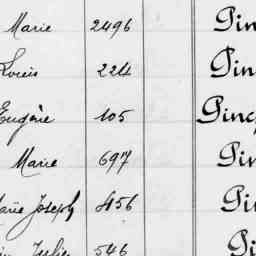 Marie 2496 Pin
Louis 224 Pin
Eugène 105 Pinc
Marie 697 Pin
Marie Joseph 456 Pin
Julie 546 Pi